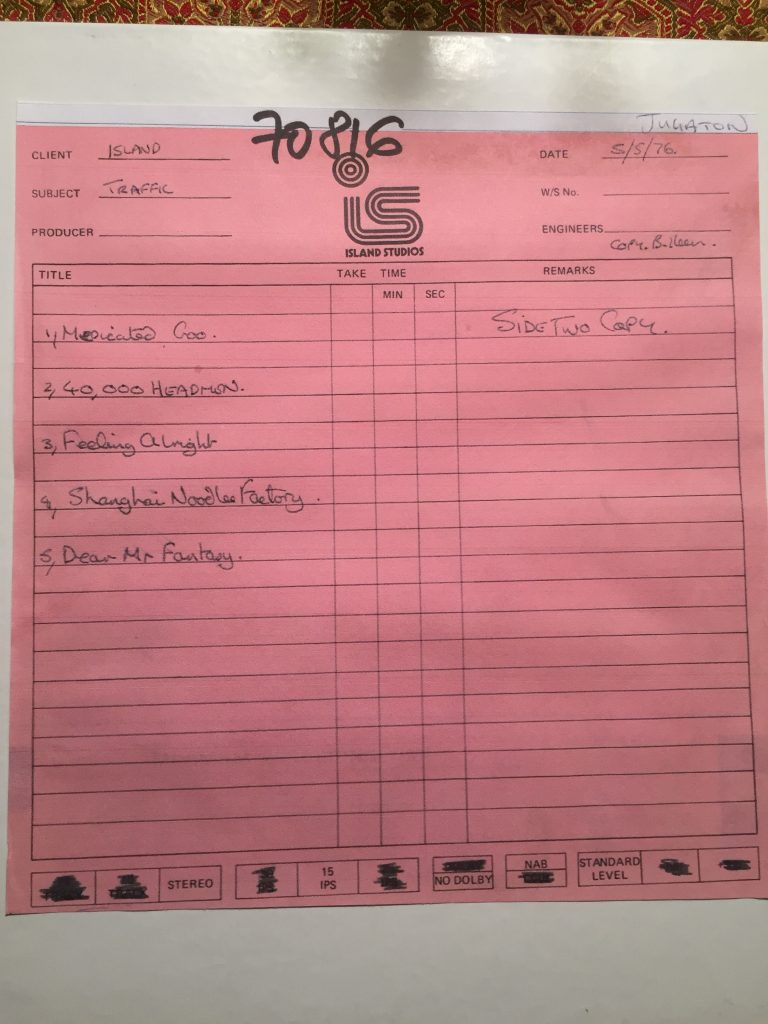 70816
JUGATON
CLIENT ISLAND
DATE 5/5/76.
SUBJECT TRAFFIC
W/S No.
PRODUCER
ENGINEERS
COPY.
IS
ISLAND STUDIOS
TITLE TAKE TIME REMARKS
MIN SEC
1, Medicated Goo. SIDE TWO COPY.
2, 40,000 HEADMEN.
3, Feeling Alright
4, Shanghai Noodle Factory.
5, Dear Mr Fantasy.
STEREO 15 IPS NO DOLBY NAB STANDARD LEVEL